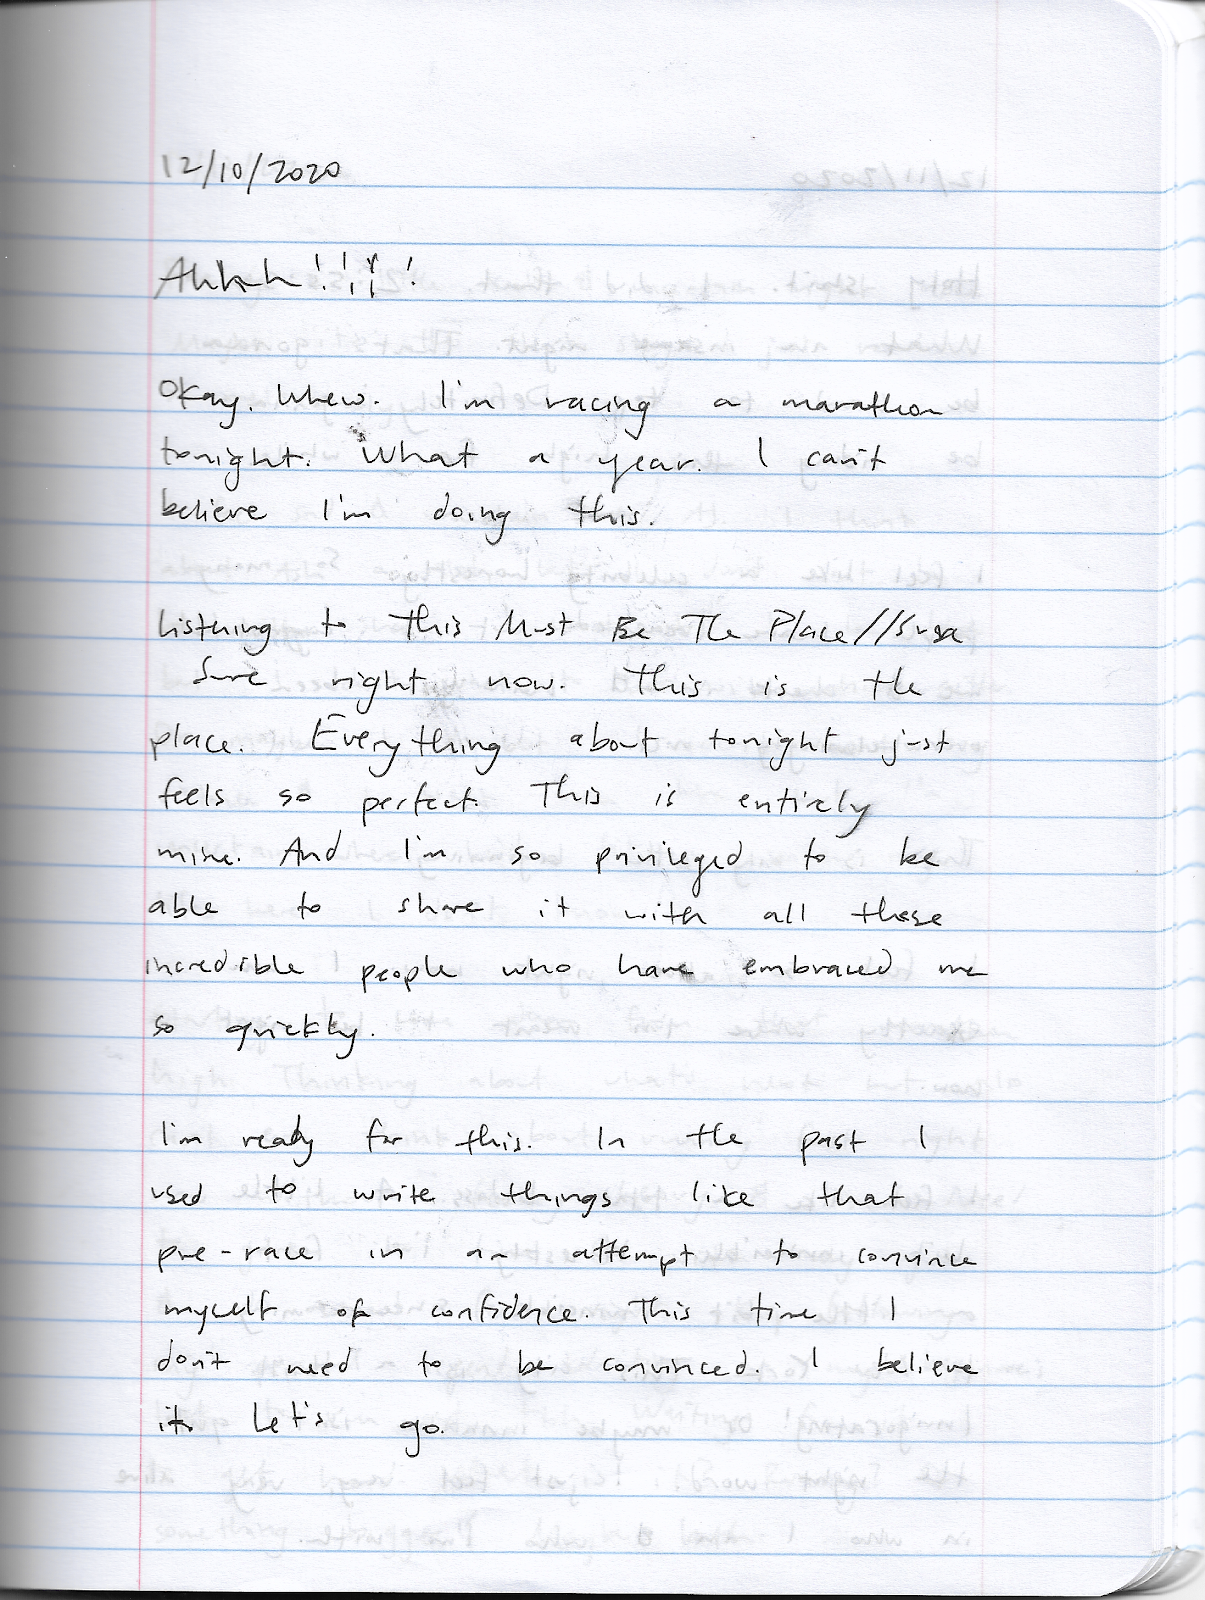 12/10/2020
Ahhhh!!!!
Okay. Whew. I'm racing a marathon
tonight. What a year. I can't
believe I'm doing this.
Listening to This Must Be The Place//Sure
Sure right now. This is the
place. Everything about tonight just
feels so perfect. This is entirely
mine. And I'm so privileged to be
able to share it with all these
incredible people who have embraced me
so quickly.
I'm ready for this. In the past I
used to write things like that
pre-race in an attempt to convince
myself of confidence. This time I
don't need to be convinced. I believe
it. Let's go.